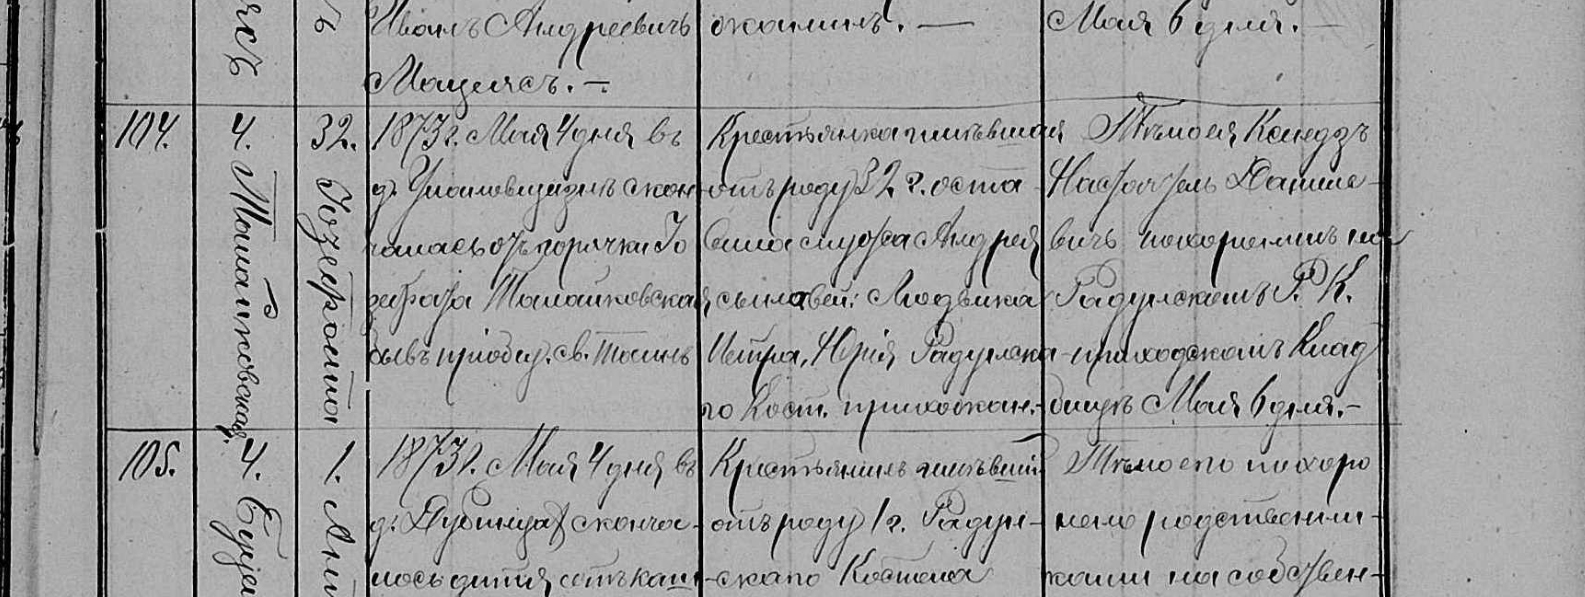 Иванъ Андреевичъ
Мацеясъ. —
жанинъ. —
Мая 6 дня. —
104.
4.
Талайковская
32.
Юзефата
1873 г. Мая 4 дня въ
д. скон-
чалась отъ горячки Іо
зефата Талайковская
бывъ пріобщ. св. Таинъ
Крестьянка имѣвшая
отъ роду 32 г. оста-
вила мужа Андрея
сыновей: Людвика
Петра, Юрія Радунска-
го Кост. прихожан. —
Тѣло ея Ксендзъ
Настоятель Даниле-
вичъ похоронилъ на
Радунскомъ Р. К.
приходскомъ Клад
бищѣ Мая 6 дня. —
105.
4.
1.
1873 г. Мая 4 дня въ
д. Дубинцахъ сконча-
лось дитя отъ каш
Крестьянинъ имѣвшій
отъ роду 1 г. Радун-
скаго Костела
Тѣло его похоро
нено родственни-
ками на собствен-